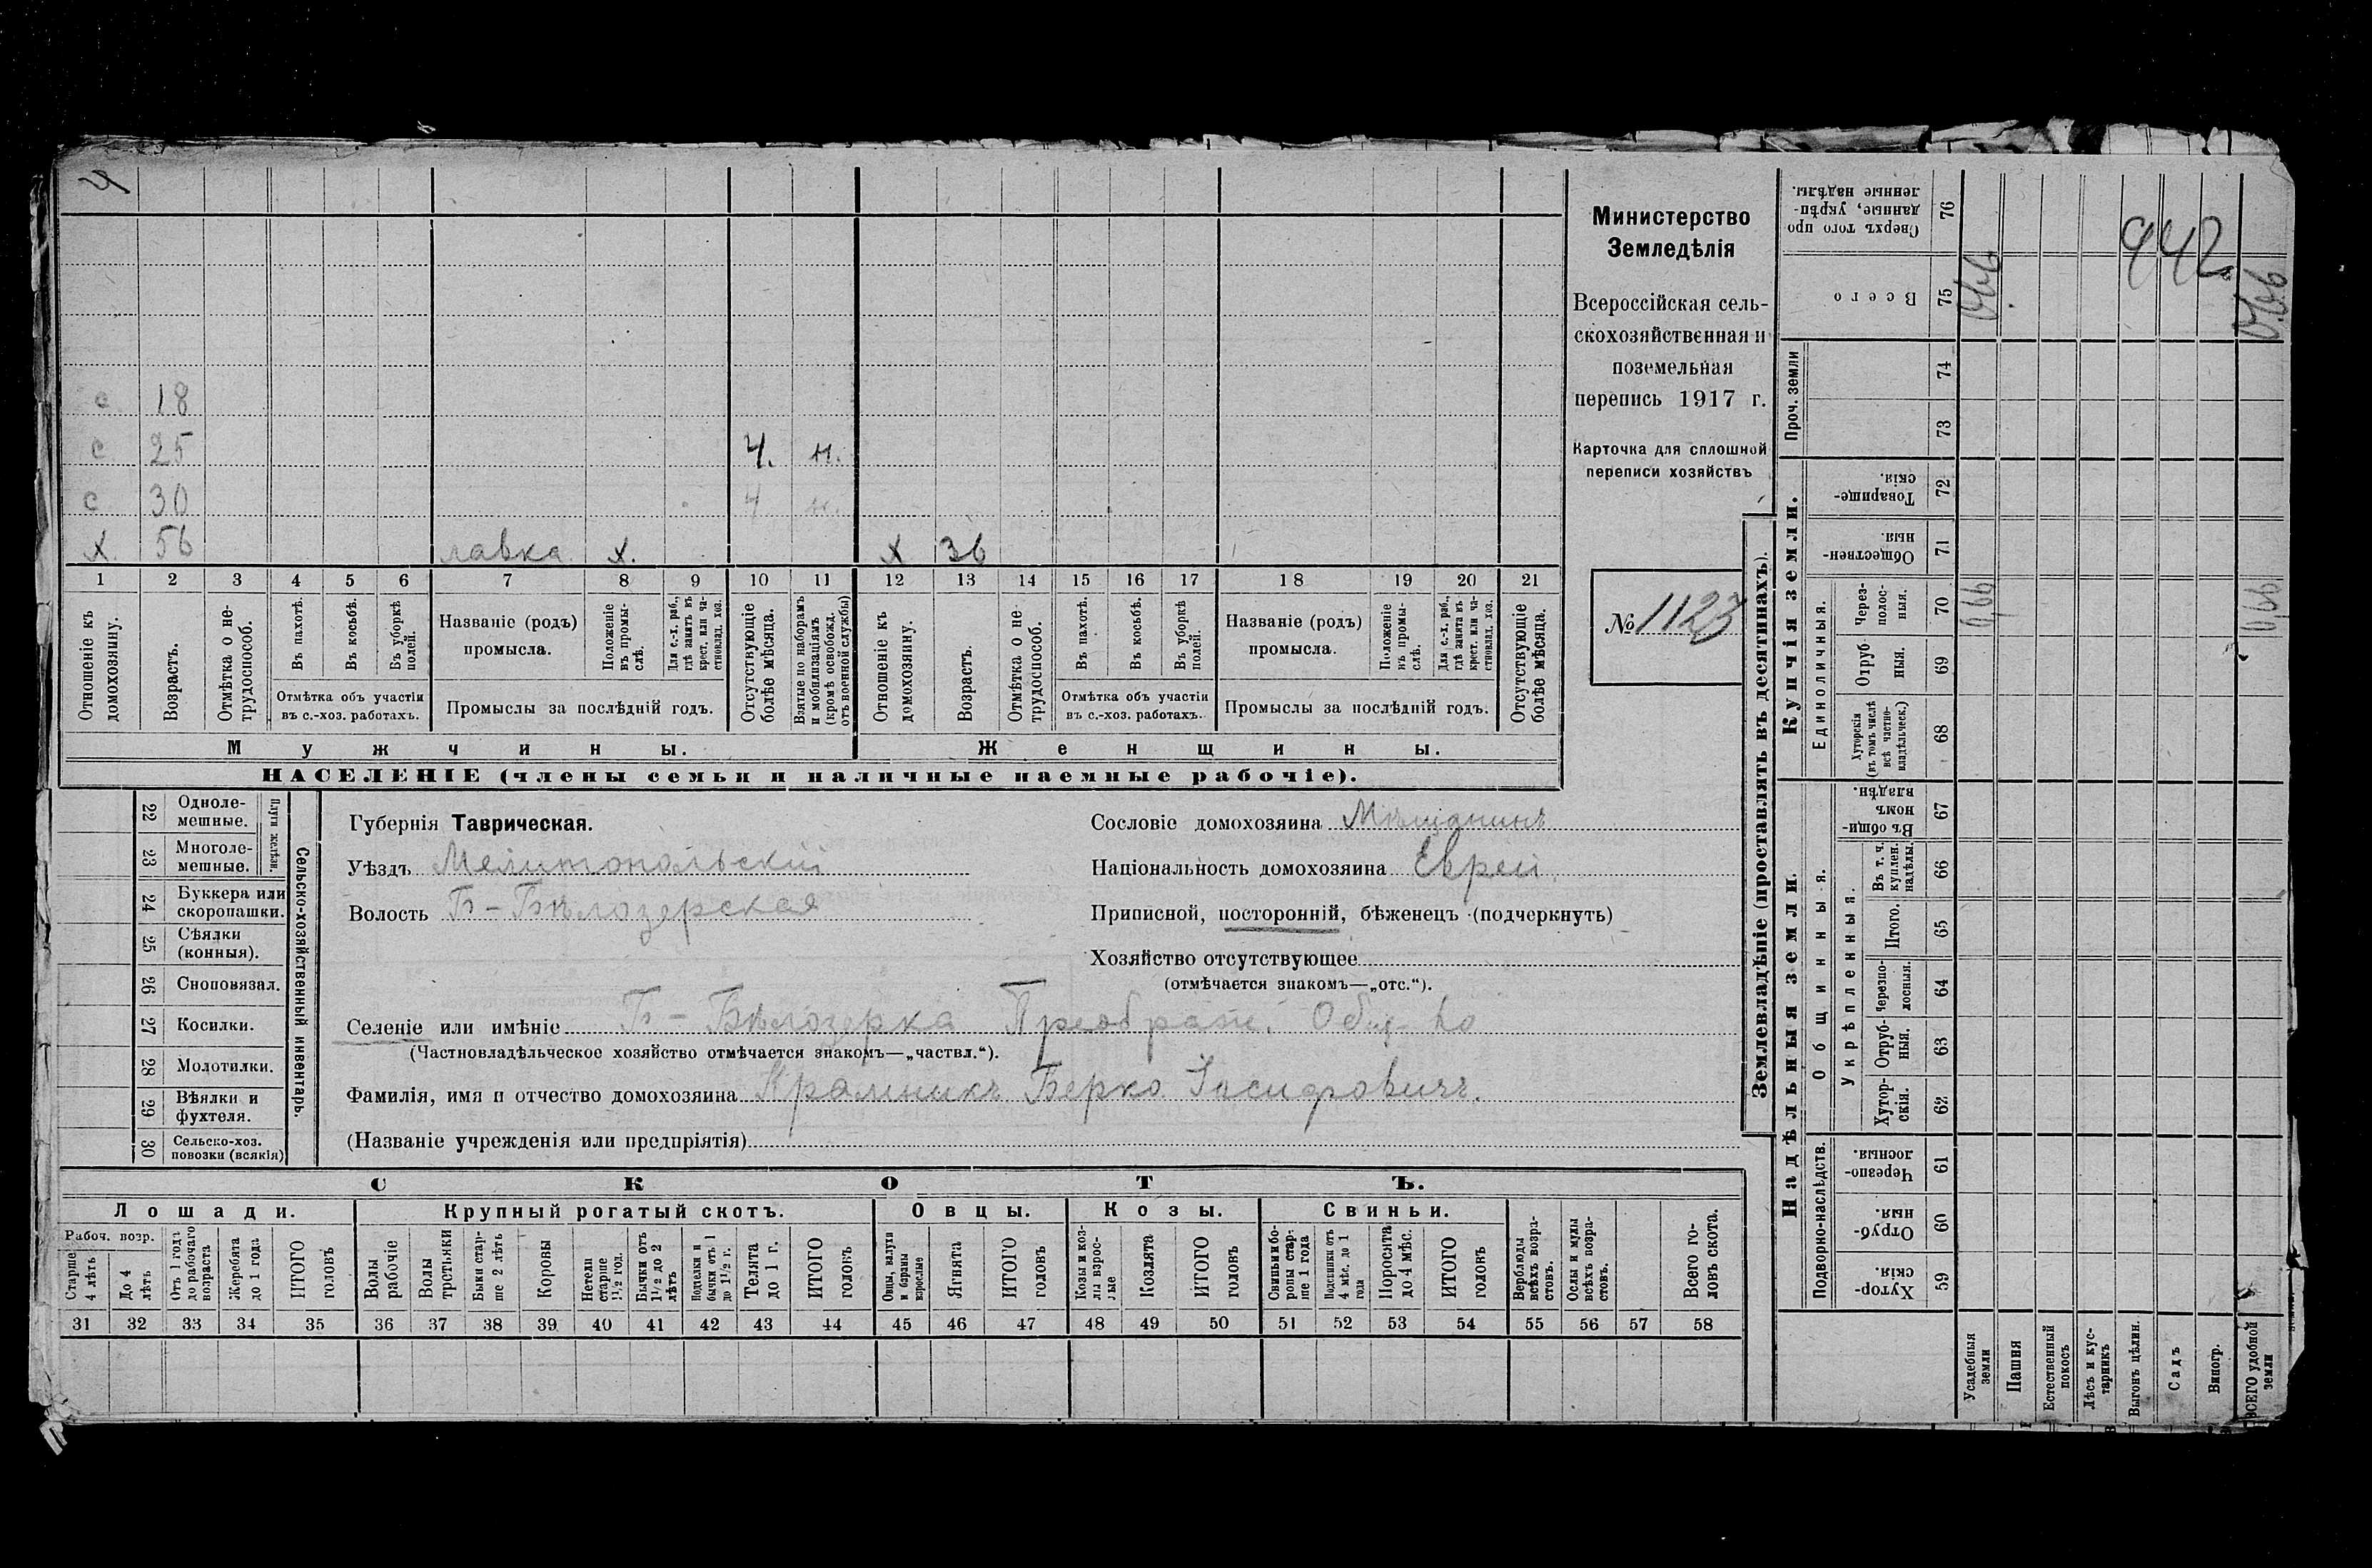 4
с 18
с 25 4. н.
с 30 4 н.
х. 56 лавка х. х 36
1 2 3 4 5 6 7 8 9 10 11 12 13 14 15 16 17 18 19 20 21
Отношеніе къ домохозяину.
Возрастъ.
Отмѣтка о не-
трудоспособ.
Въ пахотѣ.
Въ косьбѣ.
Въ уборкѣ полей.
Отмѣтка объ участіи
въ с.-хоз. работахъ.
Названіе (родъ)
промысла.
Положеніе въ промы-
слѣ.
Для с.-х. раб.,
гдѣ занятъ въ
крест. или ча-
стновлад. хоз.
Промыслы за послѣдній годъ.
Отсутствующіе
болѣе мѣсяца.
Взятые по наборамъ
и мобилизаціямъ
(кромѣ освобожд.
отъ военной службы)
Отношеніе къ
домохозяину.
Возрастъ.
Отмѣтка о не
трудоспособ.
Въ пахотѣ.
Въ косьбѣ.
Въ уборкѣ
полей.
Отмѣтка объ участіи
въ с.-хоз. работахъ.
Названіе (родъ)
промысла.
Положеніе
въ промы-
слѣ.
Для с.-х. раб.,
гдѣ занята въ
крест. или ча-
стновлад. хоз.
Промыслы за послѣдній годъ.
Отсутствующіе
болѣе мѣсяца.
Мужчины.
Женщины.
НАСЕЛЕНІЕ (члены семьи и наличные наемные рабочіе).
Министерство
Земледѣлія
Всероссійская сель-
скохозяйственная и
поземельная
перепись 1917 г.
Карточка для сплошной
переписи хозяйствъ
№ 1123
22 Одноле-
мешные.
23 Многоле-
мешные.
Плуги желѣзн.
24 Буккера или
скоропашки.
25 Сѣялки
(конныя).
26 Сноповязал.
27 Косилки.
28 Молотилки.
29 Вѣялки и
фухтеля.
30 Сельско-хоз.
повозки (всякія)
Сельско-хозяйственный инвентарь.
Губернія Таврическая.
Уѣздъ Мелитопольскій
Волость Б-Бѣлозерская
Сословіе домохозяина Мѣщанинъ
Національность домохозяина Еврей.
Приписной, посторонній, бѣженецъ (подчеркнуть)
Хозяйство отсутствующее
(отмѣчается знакомъ—„отс.“).
Селеніе или имѣніе Б-Бѣлозерка Преображ. Общ-во
(Частновладѣльческое хозяйство отмѣчается знакомъ—„частвл.“).
Фамилія, имя и отчество домохозяина Крамникъ Берко Іосифовичъ.
(Названіе учрежденія или предпріятія)
СКОТЪ.
Лошади.
Крупный рогатый скотъ.
Овцы.
Козы.
Свиньи.
Рабоч. возр.
Старше
4 лѣтъ
До 4
лѣтъ
Отъ 1 года
до рабочаго
возраста
Жеребята
до 1 года
ИТОГО
головъ
Волы
рабочіе
Волы
третьяки
Быки стар-
ше 2 лѣтъ
Коровы
Нетели
старше
1½ год.
Бычки отъ
1½ до 2
лѣтъ
Подтелки и
бычки отъ 1
до 1½ г.
Телята
до 1 г.
ИТОГО
головъ
Овцы, валухи
и бараны
взрослые
Ягнята
ИТОГО
головъ
Козы и коз-
лы взрос-
лые
Козлята
ИТОГО
головъ
Свиньи и бо-
ровы стар-
ше 1 года
Подсвинки отъ
4 мѣс. до 1
года
Поросята
до 4 мѣс.
ИТОГО
головъ
Верблюды
всѣхъ возра-
стовъ.
Ослы и мулы
всѣхъ возра-
стовъ.
Всего го-
ловъ скота.
31 32 33 34 35 36 37 38 39 40 41 42 43 44 45 46 47 48 49 50 51 52 53 54 55 56 57 58
Землевладѣніе (проставлять въ десятинахъ).
Купчія земли.
Надѣльныя земли.
Проч. земли
Единоличныя.
Общинныя.
Укрѣпленныя.
Подворно-наслѣдств.
Сверхъ того про
данные, укрѣп-
ленные надѣлы.
76
Всего
75
74
73
Товарище-
скія.
72
Обществен-
ныя.
71
Через-
полос-
ныя.
70
Отруб
ныя.
69
Хуторскія
(въ томъ числѣ
всѣ частно-
владѣльческ.)
68
Въ общи-
номъ
владѣн.
67
Въ т. ч.
куплен.
надѣлы.
66
Итого.
65
Черезпо-
лосныя.
64
Отруб-
ныя.
63
Хутор-
скія.
62
Черезпо-
лосныя.
61
Отруб-
ныя.
60
Хутор-
скія.
59
942
0,66
0,66
0,66
0,66
Усадебныя
земли
Пашня
Естественный
покосъ
Лѣсъ и кус-
тарникъ
Выгонъ цѣлин.
Садъ
Виногр.
ВСЕГО удобной
земли